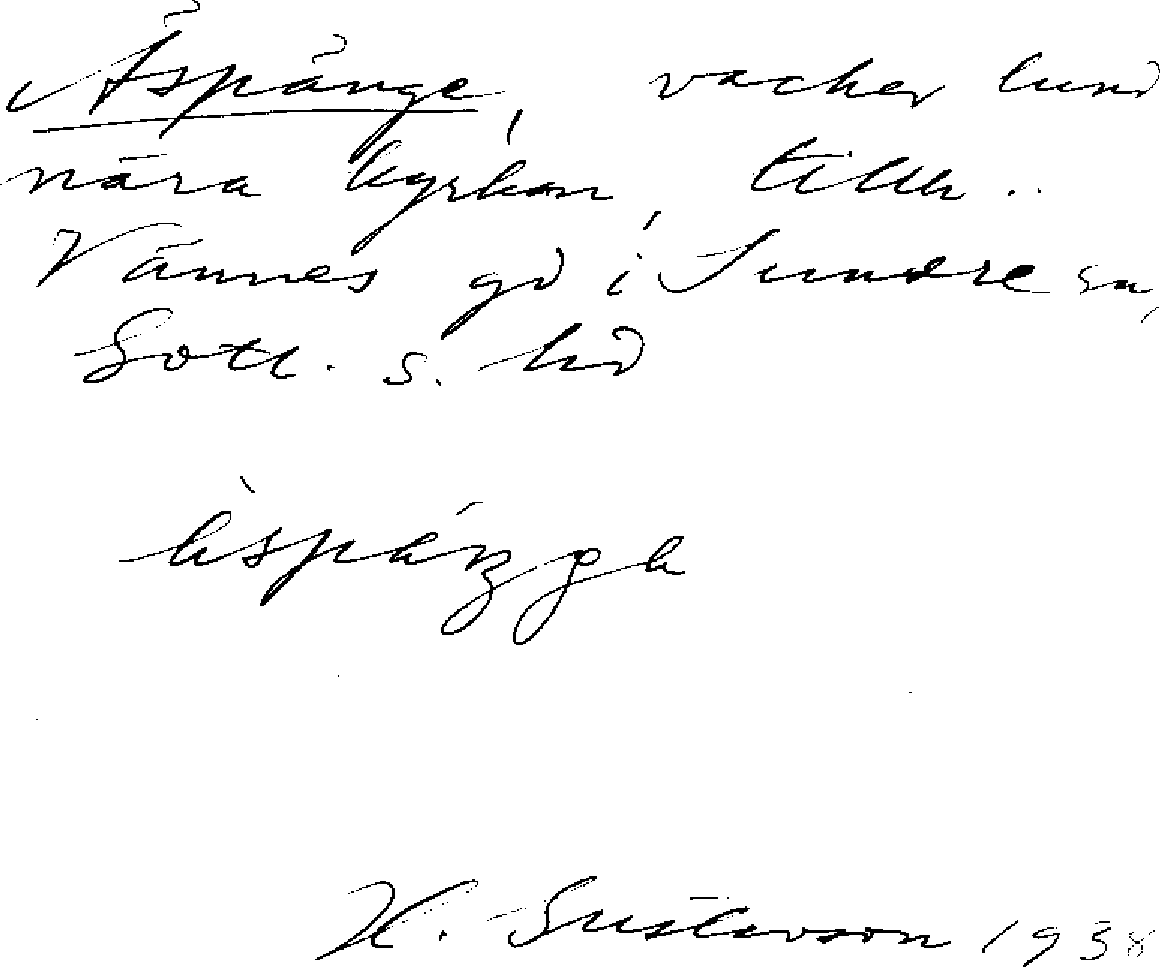 Äspänge, vacker lund
nära kyrkan, tillh..
Vännes gd i Sundre sn,
Gotl. s. hd
H. Gustavson 1938